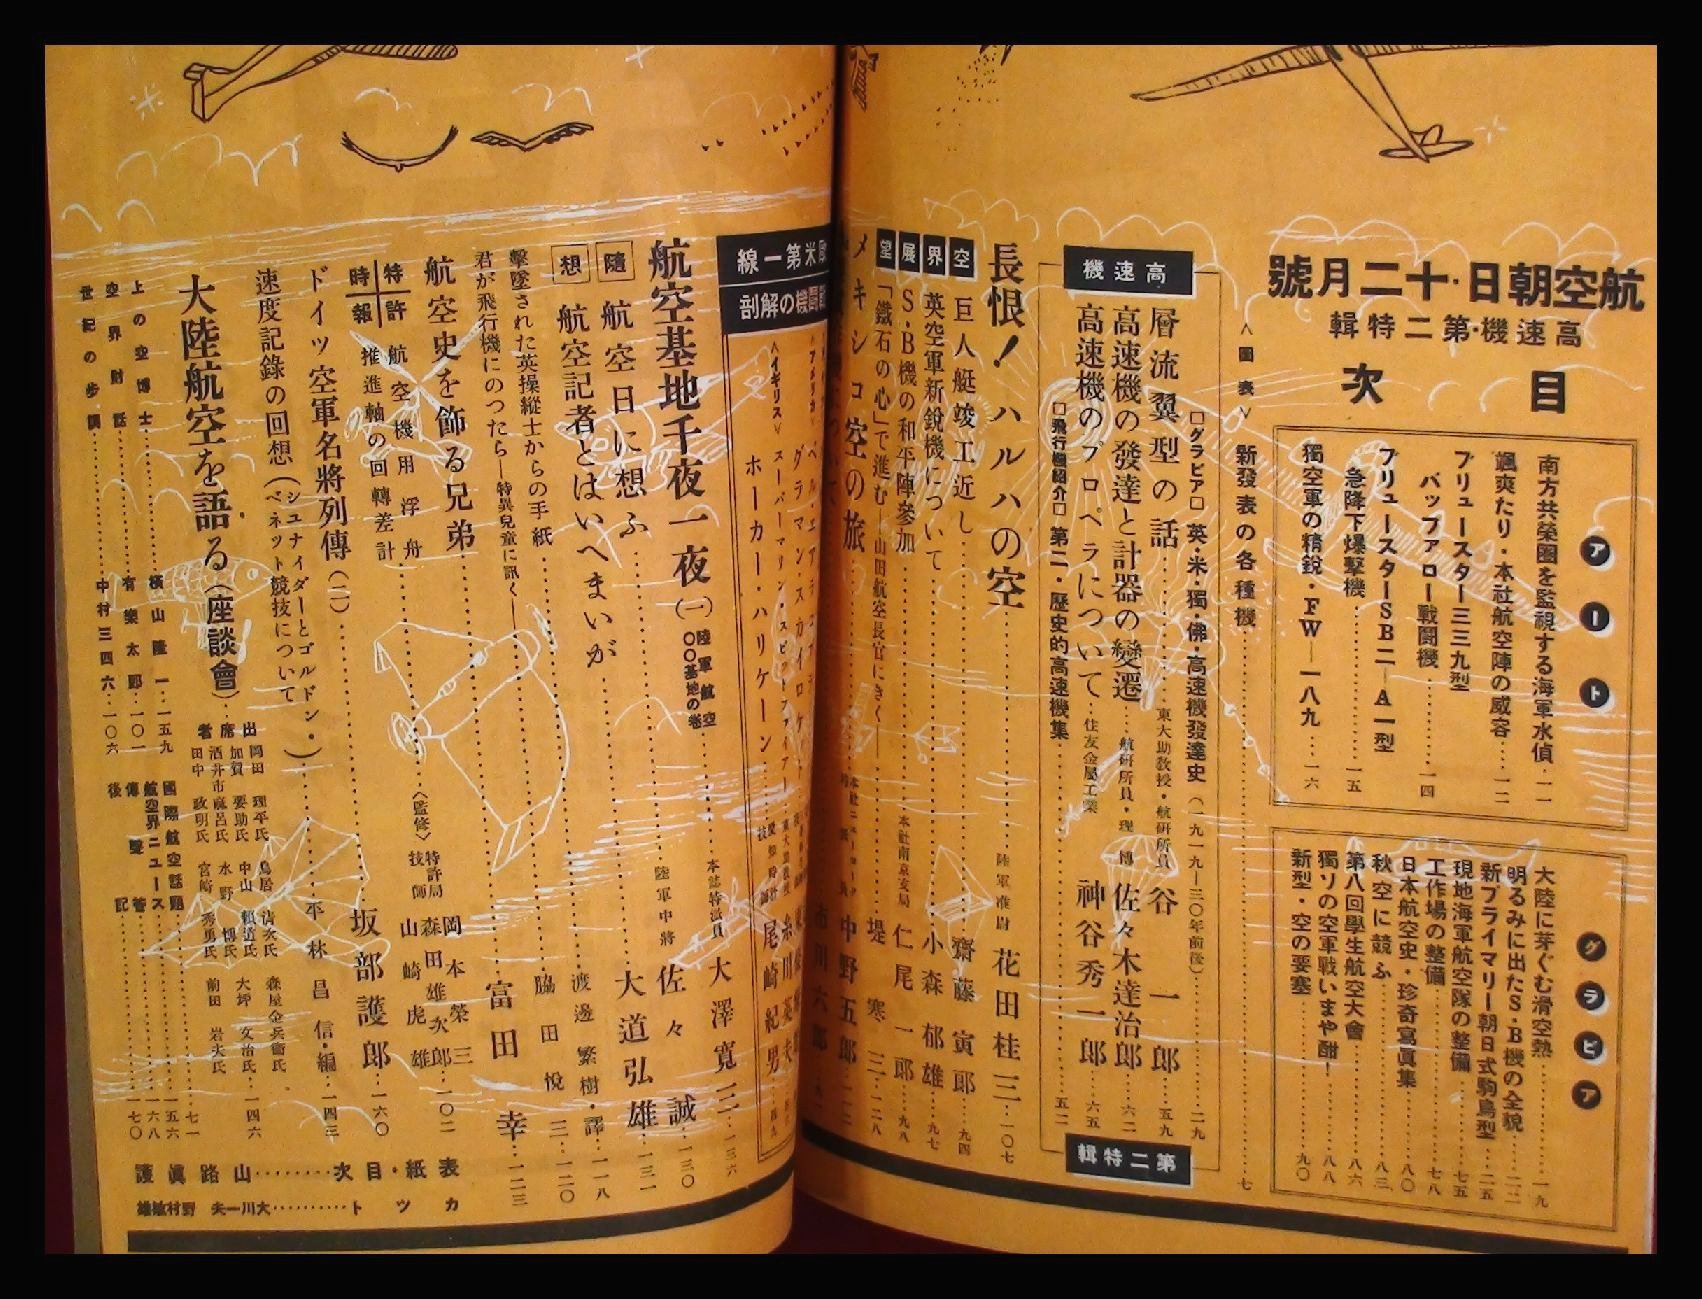 航空朝日・十二月號
高速機・第二特輯
目次
アート
南方共榮圏を監視する海軍水偵‥一一
颯爽たり・本社航空陣の威容‥一二
ブリュースター三三九型
バッファロー戰闘機‥一四
ブリュースターSB二—A一型
急降下爆撃機‥一五
獨空軍の精鋭・FW—一八九‥一六
グラビア
大陸に芽ぐむ滑空熱‥一九
明るみに出たS・B機の全貌‥二二
新プライマリー朝日式駒鳥型‥二五
現地海軍航空隊の整備‥七五
工作場の整備‥七八
日本航空史・珍奇寫眞集‥八〇
秋空に競ふ‥八三
第八回學生航空大會‥八六
獨ソの空軍戰いまや酣!‥八八
新型・空の要塞‥九〇
<圖表> 新發表の各種機‥七
高速機
□グラビア□ 英・米・獨・佛・高速機發達史(一九一九—三〇年前後)‥二九
層流翼型の話‥東大助教授・航研所員 谷一郎‥五九
高速機の發達と計器の變遷‥航研所員・理博 佐々木達治郎‥六二
高速機のプロペラについて‥住友金屬工業 神谷秀一郎‥六五
□飛行機紹介□ 第二・歷史的高速機集‥五二
第二特輯
長恨!ハルハの空‥陸軍准尉 花田桂三‥一〇七
空界展望
巨人艇竣工近し‥齋藤寅郎‥九四
英空軍新銳機について‥小森郁雄‥九七
S・B機の和平陣參加‥本社南京支局 仁尾一郎‥九八
「鐵石の心」で進む—山田航空長官にきく—‥堤寒三‥一二八
メキシコ空の旅‥中野五郎‥一三二
米第一線
機の解剖
<アメリカ>ベル・エアラコブラ
グラマン・スカイロケット
<イギリス>スーパーマリン・スピットファイアー
ホーカー・ハリケーン‥尾崎紀男‥四九
航空基地千夜一夜(一)陸軍航空〇〇基地の卷‥本誌特派員 大澤寛三‥一三六
隨想
航空日に想ふ‥陸軍中將 佐々誠‥一三〇
航空記者とはいへまいが‥大道弘雄‥一三一
撃墜された英操縱士からの手紙‥渡邊繁樹・譯‥一一八
君が飛行機にのつたら—特異兒童に訊く—‥脇田悅三‥一二〇
航空史を飾る兄弟‥富田幸‥一二三
特許時報
航空機用浮舟
推進軸の回轉差計‥<監修>特許局技師 岡本榮三 森田雄次郎 山崎虎雄‥一〇二
ドイツ空軍名將列傳(二)‥坂部護郎‥一六〇
速度記錄の回想(シュナイダーとゴルドン・ベネット競技について)‥平林昌信・編‥一四三
大陸航空を語る(座談會)‥一四六
出席者
岡田理平氏 鳥居清次氏 森屋金兵衞氏
加賀要助氏 中山賴道氏 大坪文治氏
酒井市麻呂氏 水野博氏
田中政明氏 宮崎秀勇氏 前田岩夫氏
上の空博士‥橫山隆一‥一五九
空界財話‥有樂太郎‥一〇一
世紀の步調‥中村三四六‥一〇六
國際航空話題‥七一
航空界ニュース‥一五六
傳聲管‥一六八
後記‥一七〇
表紙・目次‥山路眞護
カット‥大川一夫 野村敏雄